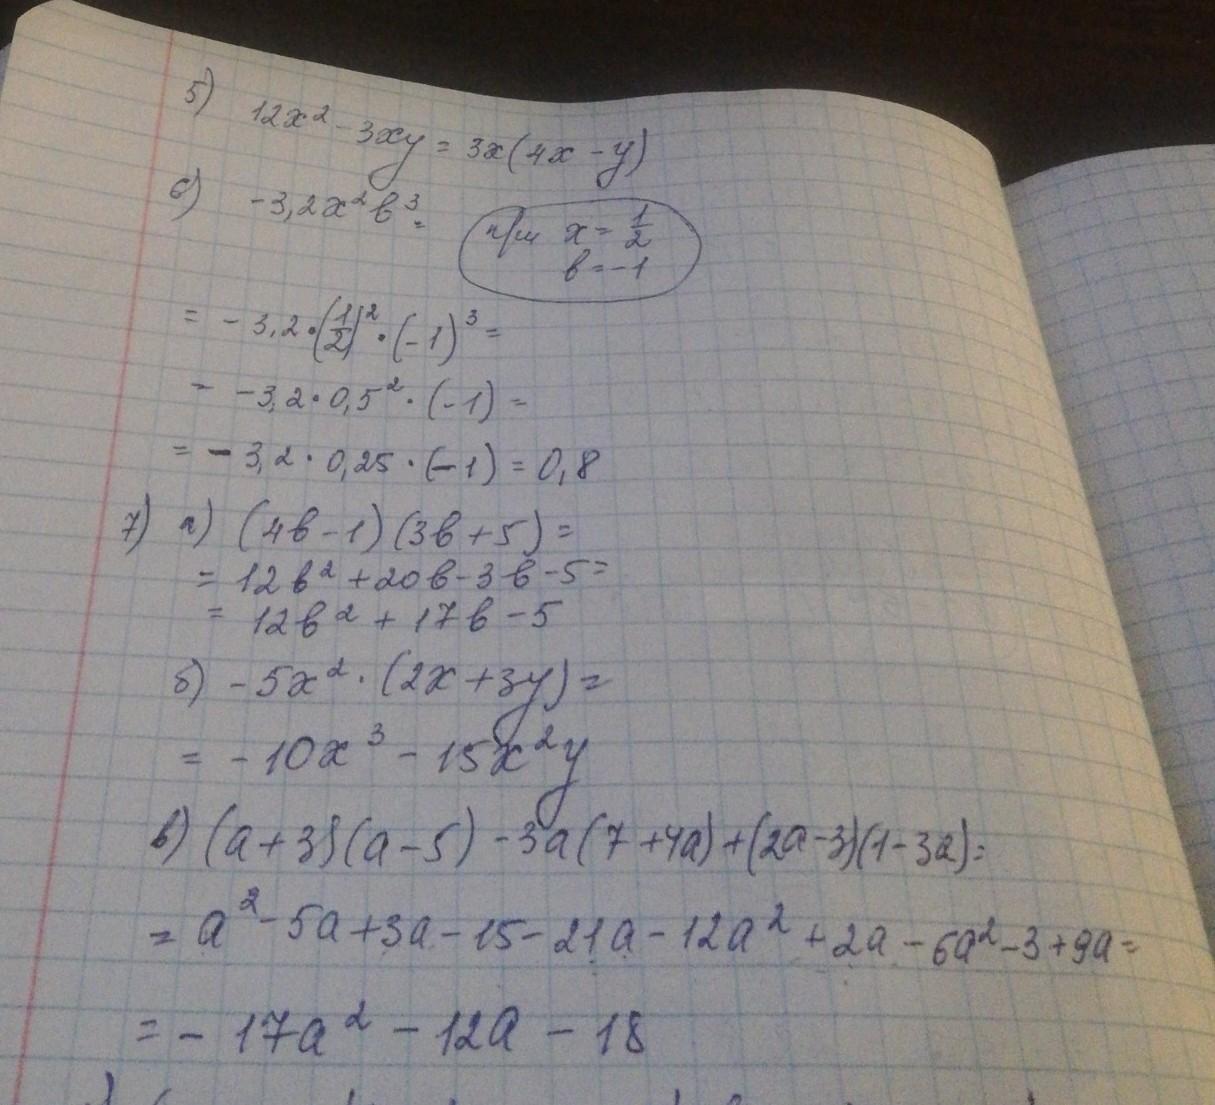 5) 12x² - 3xy = 3x(4x - y)
6) -3,2x²b³ =
при x = 1/2
b = -1
= -3,2 · (1/2)² · (-1)³ =
= -3,2 · 0,5² · (-1) =
= -3,2 · 0,25 · (-1) = 0,8
7) а) (4b - 1)(3b + 5) =
= 12b² + 20b - 3b - 5 =
= 12b² + 17b - 5
б) -5x² · (2x + 3y) =
= -10x³ - 15x²y
в) (a + 3)(a - 5) - 3a(7 + 4a) + (2a - 3)(1 - 3a) =
= a² - 5a + 3a - 15 - 21a - 12a² + 2a - 6a² - 3 + 9a =
= -17a² - 12a - 18